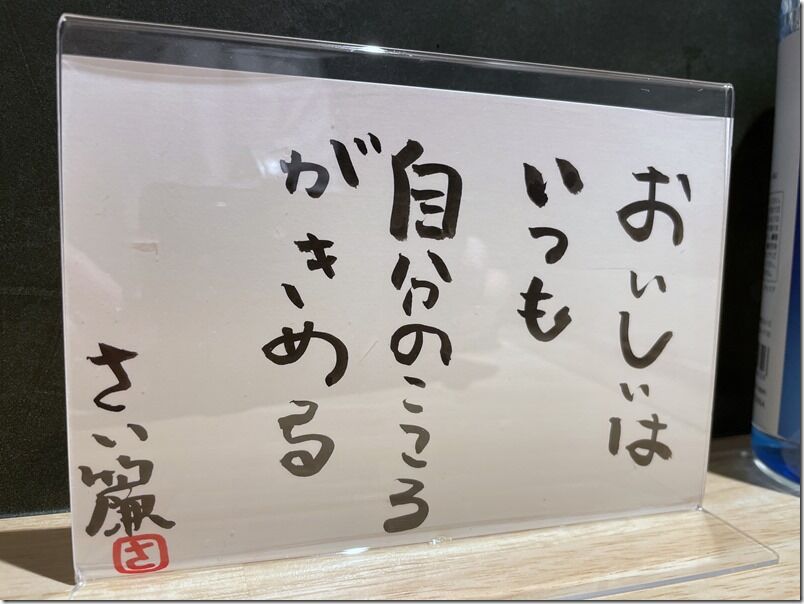 おいしいは
いつも
自分のこころ
がきめる
さい
さ